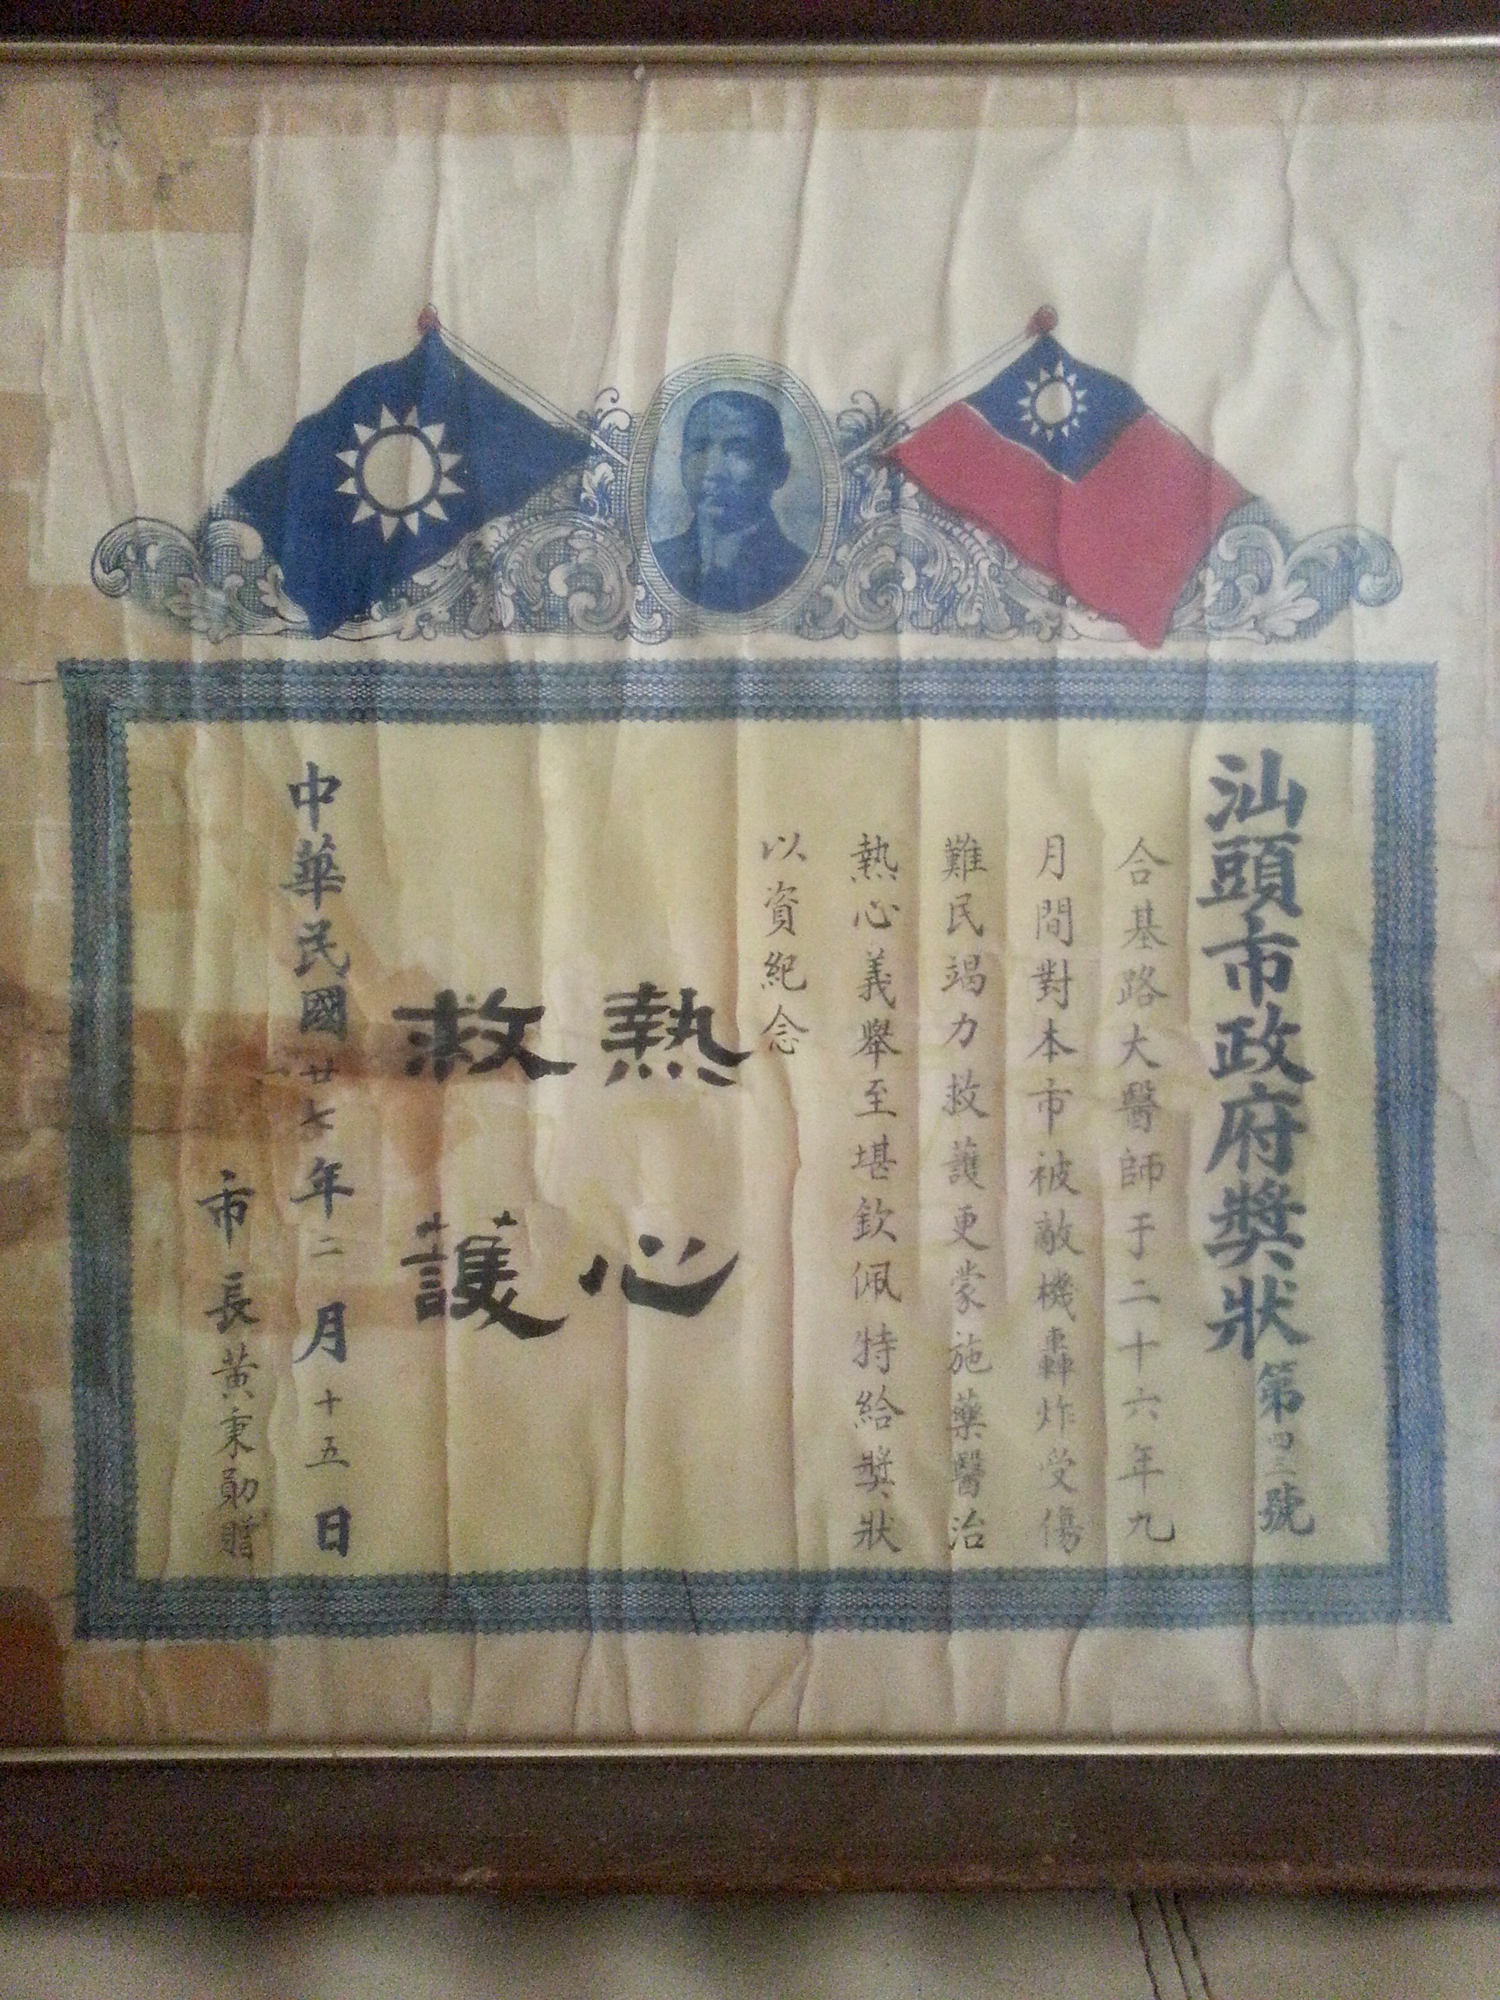 汕頭市政府獎狀第四三號
合基路大醫師于二十六年九
月間對本市被敵機轟炸受傷
難民竭力救護更蒙施藥醫治
熱心義舉至堪欽佩特給獎狀
以資紀念
熱心
救護
中華民國廿七年二月十五日
市長黃秉勛贈